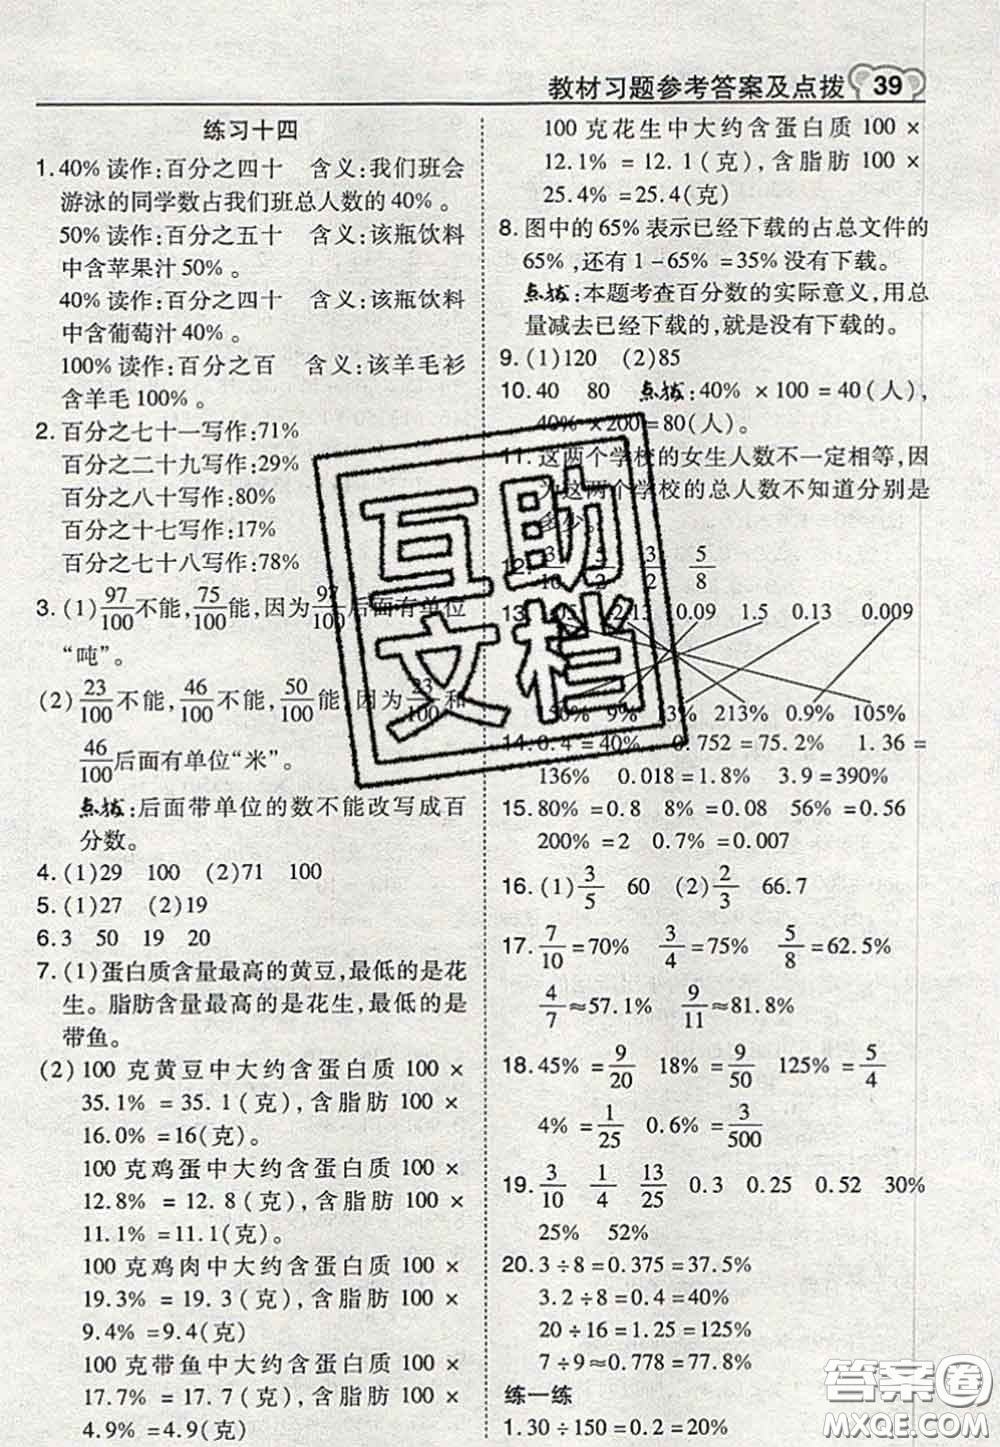 教材习题参考答案及点拨 39
练习十四
1. 40% 读作:百分之四十 含义:我们班会
游泳的同学数占我们班总人数的 40% 。
50% 读作:百分之五十 含义:该瓶饮料
中含苹果汁 50% 。
40% 读作:百分之四十 含义:该瓶饮料
中含葡萄汁 40% 。
100% 读作:百分之百 含义:该羊毛衫
含羊毛 100% 。
2. 百分之七十一写作:71%
百分之二十九写作:29%
百分之八十写作:80%
百分之十七写作:17%
百分之七十八写作:78%
3. (1) 97/100 不能, 75/100 能,因为 97/100 后面有单位
“吨”。
(2) 23/100 不能, 46/100 不能, 50/100 能,因为 23/100 和
46/100 后面有单位“米”。
点拨:后面带单位的数不能改写成百
分数。
4. (1)29 100 (2)71 100
5. (1)27 (2)19
6. 3 50 19 20
7. (1)蛋白质含量最高的黄豆,最低的是花
生。脂肪含量最高的是花生,最低的是
带鱼。
(2) 100 克黄豆中大约含蛋白质 100 ×
35.1% = 35.1(克),含脂肪 100 ×
16.0% =16(克)。
100 克鸡蛋中大约含蛋白质 100 ×
12.8% = 12.8(克),含脂肪 100 ×
11.1% =11.1(克)。
100 克鸡肉中大约含蛋白质 100 ×
19.3% = 19.3(克),含脂肪 100 ×
9.4% =9.4(克)
100 克带鱼中大约含蛋白质 100 ×
17.7% = 17.7(克),含脂肪 100 ×
4.9% =4.9(克)
100 克花生中大约含蛋白质 100 ×
12.1% = 12.1(克),含脂肪 100 ×
25.4% =25.4(克)
8. 图中的 65% 表示已经下载的占总文件的
65%,还有 1-65% =35% 没有下载。
点拨:本题考查百分数的实际意义,用总
量减去已经下载的,就是没有下载的。
9. (1)120 (2)85
10. 40 80 点拨:40% ×100 =40(人),
40% ×200 =80(人)。
11. 这两个学校的女生人数不一定相等,因
为这两个学校的总人数不知道分别是
多少。
12. 3/10 5/2 3/2 5/8
13. 2.13 0.09 1.5 0.13 0.009
150% 9% 13% 213% 0.9% 105%
14. 0.4 =40% 0.752 =75.2% 1.36 =
136% 0.018 =1.8% 3.9 =390%
15. 80% =0.8 8% =0.08 56% =0.56
200% =2 0.7% =0.007
16. (1) 3/5 60 (2) 2/3 66.7
17. 7/10 =70% 3/4 =75% 5/8 =62.5%
4/7 ≈57.1% 9/11 ≈81.8%
18. 45% = 9/20 18% = 9/50 125% = 5/4
4% = 1/25 0.6% = 3/500
19. 3/10 1/4 13/25 0.3 0.25 0.52 30%
25% 52%
20. 3÷8 =0.375 =37.5%
3.2÷8 =0.4 =40%
20÷16 =1.25 =125%
7÷9≈0.778 =77.8%
练一练
1. 30÷150 =0.2 =20%
互助
文档
答案圈
MXQE.COM